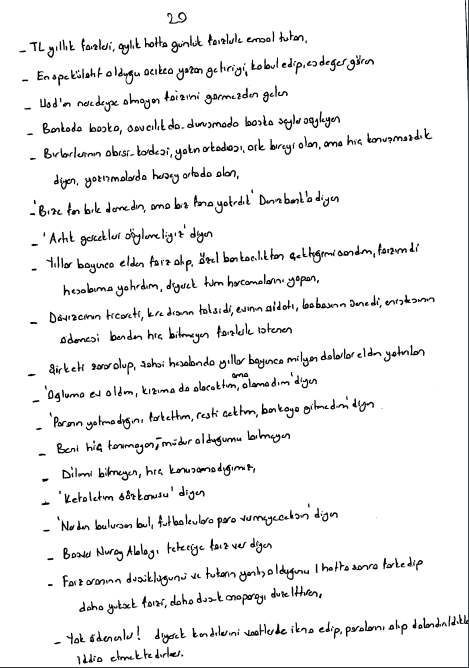 20
- TL yıllık faizleri, aylık hatta günlük faizlerle emsal tutan,
- En spekülatif olduğu açıkca yazan getiriyi, kabul edip, eş değer gören
- Usd'ın neredeyse olmayan faizini görmezden gelen
- Bankada başka, savcılıkda-duruşmada başka şeyler söyleyen
- Birbirlerinin abisi-kardeşi, yakın arkadaşı, ark bireyi olan, ama hiç konuşmazdık
diyen, yazışmalarda herşey ortada olan,
- 'Bize fon bile demedin, ama biz fona yatırdık' Denizbank'a diyen
- 'Artık gerçekleri söylemeliyiz' diyen
- Yıllar boyunca elden faiz alıp, özel bankacılıktan çektiğimi sandım, faizimdi
hesabıma yatırdım, diyerek tüm harcamalarını yapan,
- Dövizcinin ticareti, kredisinin taksidi, evinin aidatı, babasının senedi, eniştesinin
ödemesi benden hiç bitmeyen faizlerle istenen
- Şirketi zarar olup, şahsi hesabında yıllar boyunca milyon dolarlar elden yatırılan
- 'Oğluma ev aldım, kızıma da alacaktım, ama alamadım' diyen
- 'Paranın yatmadığını farkettim, resti çektim, bankaya gitmedim' diyen
- Beni hiç tanımayan, müdür olduğumu bilmeyen
- Dilimi bilmeyen, hiç konuşamadığımız,
- 'Kefaletim söz konusu' diyen
- 'Nerden bulursan bul, futbolculara para vermeyeceksin' diyen
- Başka Nuray Alalay'ı tefeciye faiz ver diyen
- Faiz oranının düşüklüğünü ve tutarın yanlış olduğunu 1 hafta sonra farkedip
daha yüksek faizi, daha düşük anaparayı düzelttiren,
- Yok ödenenler! diyerek kendilerini vaatlerle ikna edip, paralarını alıp dolandırıldıklarını
iddia etmektedirler.